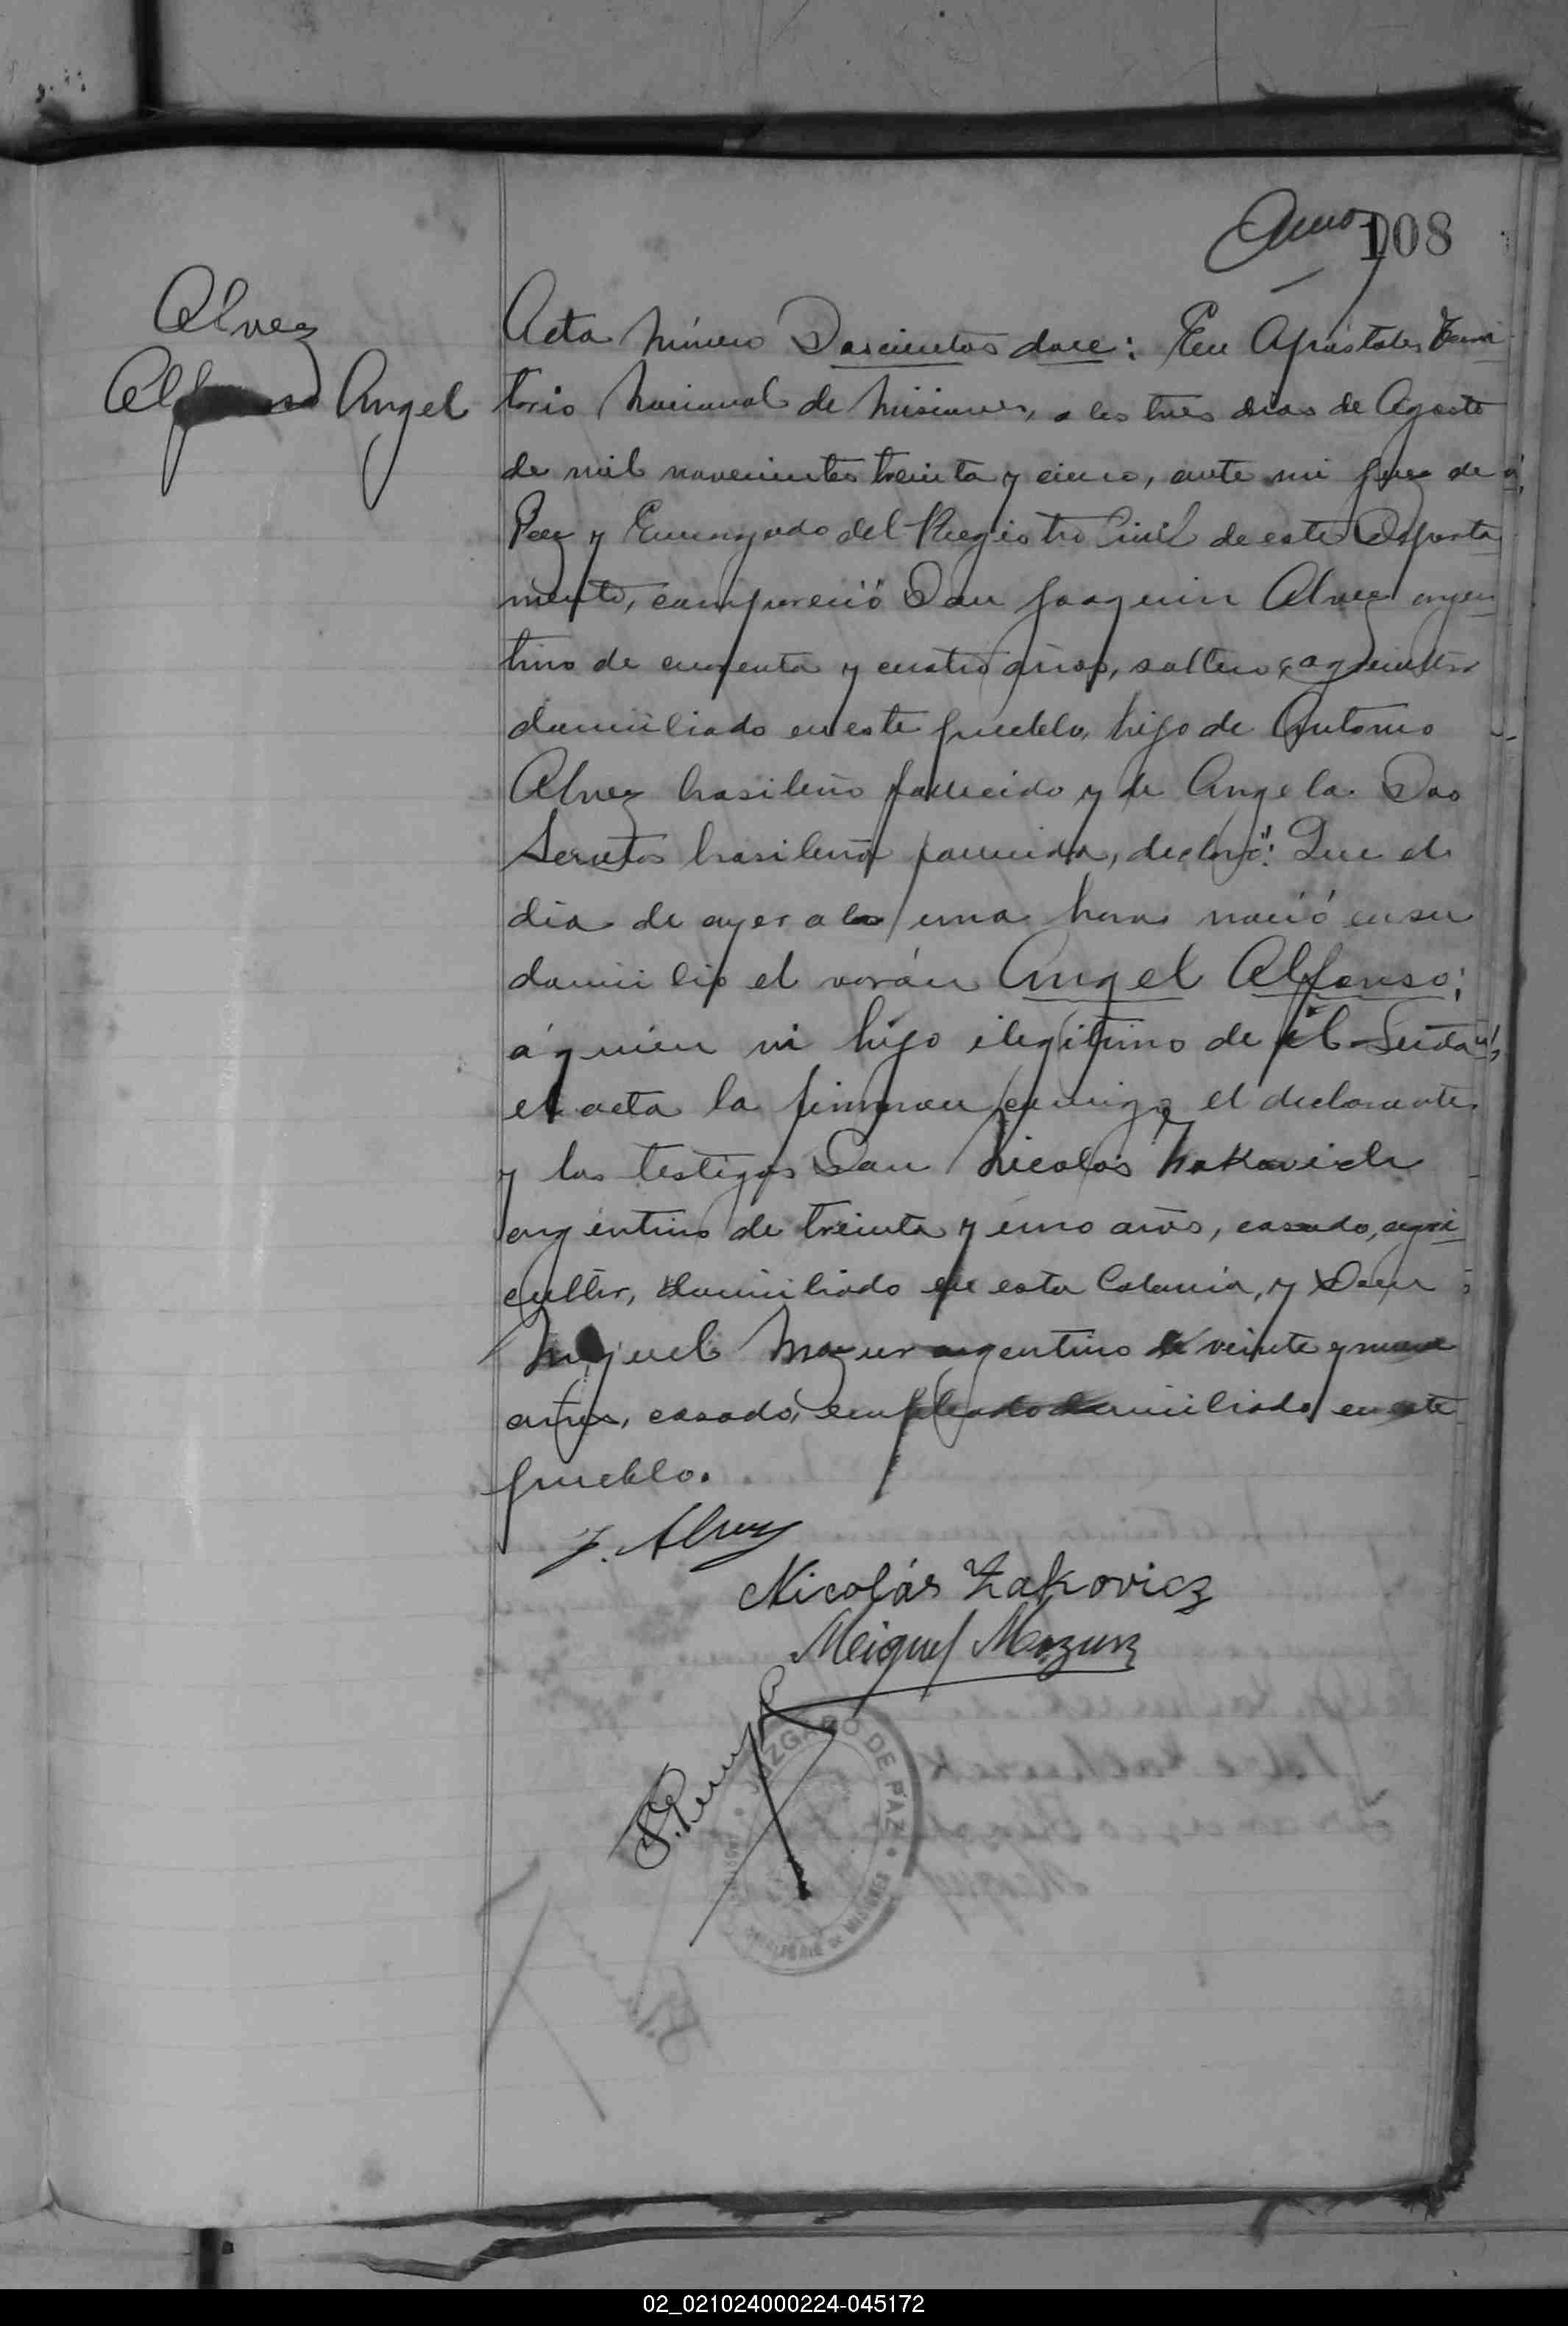 108
Alvez
Alfonso Angel
Acta Número Doscientos doce: En Apóstoles Terri-
torio Nacional de Misiones, a los tres dias de Agosto
de mil novecientos treinta y cinco, ante mi Juez de
Paz y Encargado del Registro Civil de este Departa
mento, compareció Don Joaquin Alvez argen
tino de cuarenta y cuatro años, soltero, agricultor
domiciliado en este pueblo, hijo de Antonio
Alvez brasileño fallecido y de Angela Dos
Santos brasileña fallecida, declaró: Que el
dia de ayer a la una hora nació en su
domicilio el varón Angel Alfonso;
á quien vi hijo ilegitimo de él Leida
el acta la firmaron conmigo el declarante
y los testigos Don Nicolás Zakovich
argentino de treinta y uno años, casado, agri
cultor, domiciliado en esta Colonia, y Don
Miguel Mazur argentino de veinte y nueve
años, casado, empleado domiciliado en este
pueblo.
J. Alvez
Nicolás Zakovicz
Meiguel Mazurz
JUZGADO DE PAZ
MISIONES
02_021024000224-045172